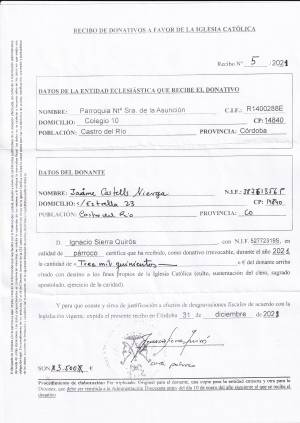 RECIBO DE DONATIVOS A FAVOR DE LA IGLESIA CATÓLICA
Recibo Nº 5 / 2021
DATOS DE LA ENTIDAD ECLESIÁSTICA QUE RECIBE EL DONATIVO
NOMBRE: Parroquia Ntª Sra. de la Asunción C.I.F.: R1400288E
DOMICILIO: Colegio 10 CP: 14840
POBLACIÓN: Castro del Río PROVINCIA: Córdoba
DATOS DEL DONANTE
NOMBRE: Jaime Castells N.I.F.:
DOMICILIO: c/ Estrella 23 CP: 14840
POBLACIÓN: Castro del Río PROVINCIA: CO
D. Ignacio Sierra Quirós con N.I.F.
calidad de párroco certifica que ha recibido, como donativo irrevocable, durante el año 2021
la cantidad de Tres mil quinientos € del donante arriba
citado con destino a los fines propios de la Iglesia Católica (culto, sustentación del clero, sagrado
apostolado, ejercicio de la caridad).
Y para que conste y sirva de justificación a efectos de desgravaciones fiscales de acuerdo con la
legislación vigente, expido el presente recibo en Córdoba 31 de diciembre de 2021
SON 3.500 €
Procedimiento de elaboración: Por triplicado. Original para el donante, una copia para la entidad emisora y otra para la
Diócesis, que debe ser remitida a la Administración Diocesana antes del día 10 de enero del año siguiente al que se recibe el
donativo